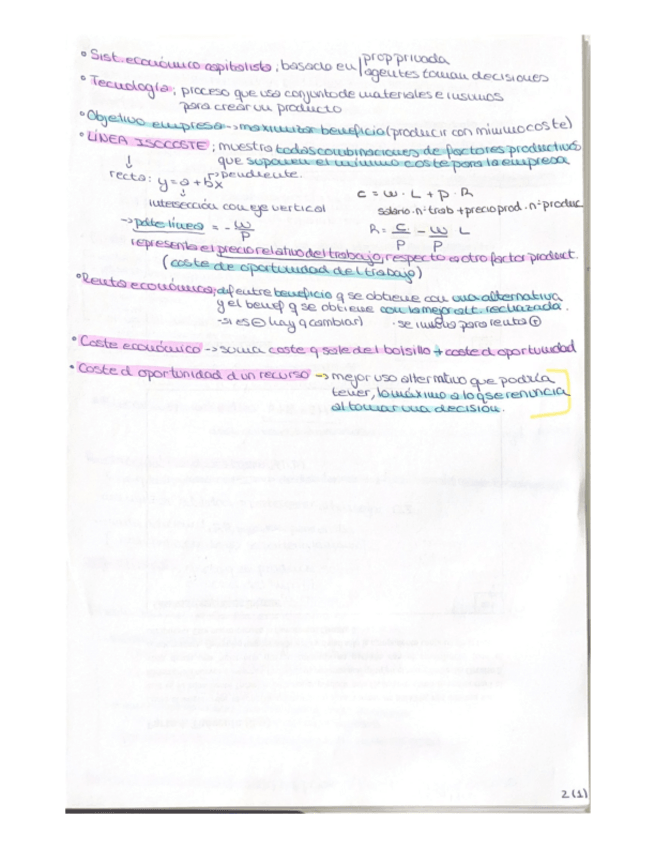 • Sist. económico capitalista; basado en prop privada
agentes toman decisiones
• Tecnología; proceso que usa conjunto de materiales e insumos
para crear un producto
• Objetivo empresa → maximizar beneficio (producir con mínimo coste)
• LÍNEA ISOCOSTE; muestra todas combinaciones de factores productivos
que suponen el mínimo coste para la empresa
↓
recta: y = a + bx → pendiente.
↓
intersección con eje vertical
c = w · L + p · R
salario · nº trab + precio prod. nº produc
→ pdte línea = - w/p
R = c/p - w/p L
representa el precio relativo del trabajo, respecto a otro factor product.
(coste de oportunidad del trabajo)
• Renta económica; dif entre beneficio q se obtiene con una alternativa
y el benef q se obtiene con la mejor alt. rechazada.
- si es ⊖ hay q cambiar)
· se innova para renta ⊕
• Coste económico → suma coste q sale del bolsillo + coste d oportunidad
• Coste d oportunidad d un recurso → mejor uso alternativo que podría
tener, lo máximo a lo q se renuncia
al tomar una decisión.
2 (1)